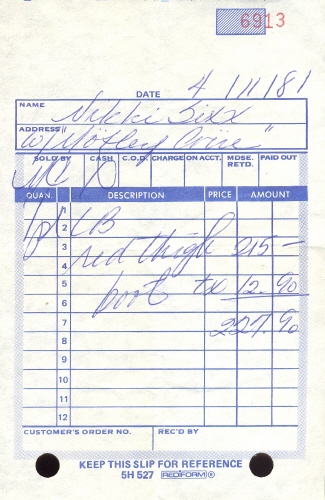 6913
DATE 4/11/81
NAME Nikki Sixx
ADDRESS w/ "Mötley Crüe"
SOLD BY CASH C.O.D. CHARGE ON ACCT. MDSE. RETD. PAID OUT
QUAN. DESCRIPTION PRICE AMOUNT
1
2 LB
3 red thigh 215—
4
5 boot tx 12.90
6
7 227.90
8
9
10
11
12
CUSTOMER'S ORDER NO. REC'D BY
KEEP THIS SLIP FOR REFERENCE
5H 527 REDIFORM®